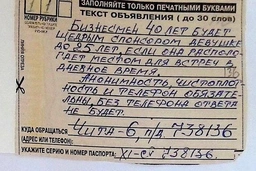 ЗАПОЛНЯЕТСЯ ТОЛЬКО ПЕЧАТНЫМИ БУКВАМИ
НОМЕР РУБРИКИ
ТЕКСТ ОБЪЯВЛЕНИЯ ( ДО 30 слов)
БИЗНЕСМЕН 40 ЛЕТ БУДЕТ
ЩЕДРЫМ СПОНСОРОМ ДЕВУШКЕ
ДО 25 ЛЕТ ЕСЛИ ОНА РАСПОЛО-
ГАЕТ МЕСТОМ ДЛЯ ВСТРЕЧ В
ДНЕВНОЕ ВРЕМЯ.
АНОНИМНОСТЬ ЧИСТОПЛОТ-
НОСТЬ И ТЕЛЕФОН ОБЯЗАТЕ-
ЛЬНЫ, БЕЗ ТЕЛЕФОНА ОТВЕТА
НЕ БУДЕТ.
КУДА ОБРАЩАТЬСЯ
(АДРЕС ИЛИ ТЕЛЕФОН):
ЧИТА-6, п/д 738136
УКАЖИТЕ СЕРИЮ И НОМЕР ПАСПОРТА:
738136.